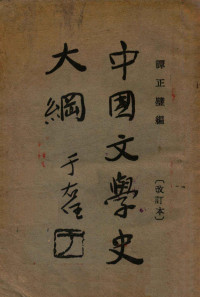 譚正璧編
〔改訂本〕
中國文學史
大綱
于右任